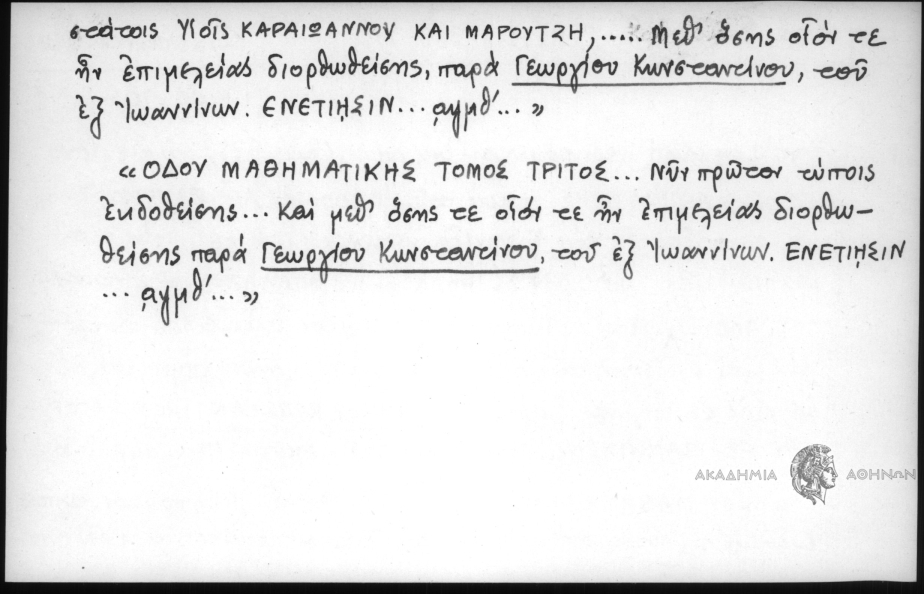 στάτοις Υἱοῖς ΚΑΡΑΙΩΑΝΝΟΥ ΚΑΙ ΜΑΡΟΥΤΖΗ, ..... Μεθ' ὅσης οἷόν τε
ἦν ἐπιμελείας διορθωθείσης, παρά Γεωργίου Κωνσταντίνου, τοῦ
ἐξ Ἰωαννίνων. ΕΝΕΤΙῌΣΙΝ... ͵αψμθ'... »
« ΟΔΟΥ ΜΑΘΗΜΑΤΙΚΗΣ ΤΟΜΟΣ ΤΡΙΤΟΣ... Νῦν πρῶτον τύποις
ἐκδοθείσης... Καί μεθ' ὅσης τε οἷόν τε ἦν ἐπιμελείας διορθω-
θείσης παρά Γεωργίου Κωνσταντίνου, τοῦ ἐξ Ἰωαννίνων. ΕΝΕΤΙῌΣΙΝ
... ͵αψμθ'... »
ΑΚΑΔΗΜΙΑ ΑΘΗΝΩΝ